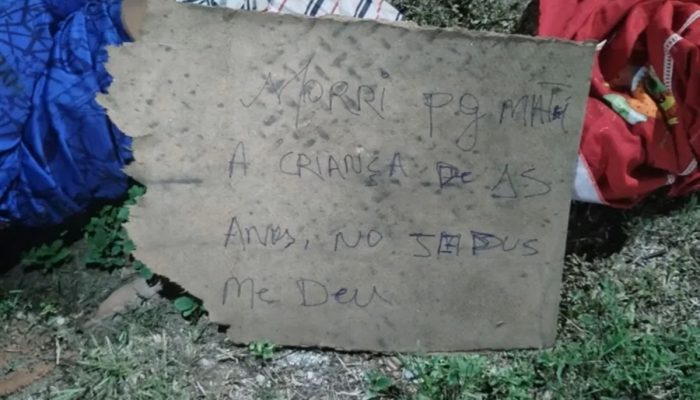 MORRI PG MATEI
A CRIANÇA DE 15
ANOS, NO
Me Deu